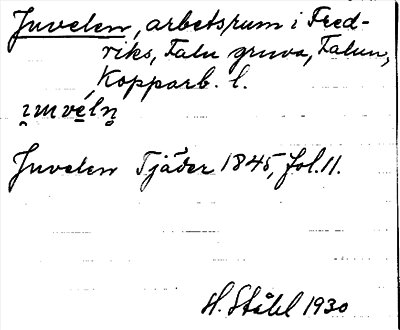 Juvelen, arbetsrum i Fred-
riks, Falu gruva, Falun,
Kopparb. l.
Juvelen Tjäder 1845, fol. 11.
H. Ståhl 1930